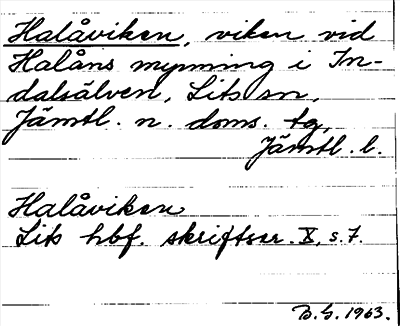 Halåviken, viken vid
Halåns mynning i In-
dalsälven, Lits sn,
Jämtl. n. doms. tg,
Jämtl. l.
Halåviken
Lits hbf. skriftser. X, s. 7.
B.G. 1963.